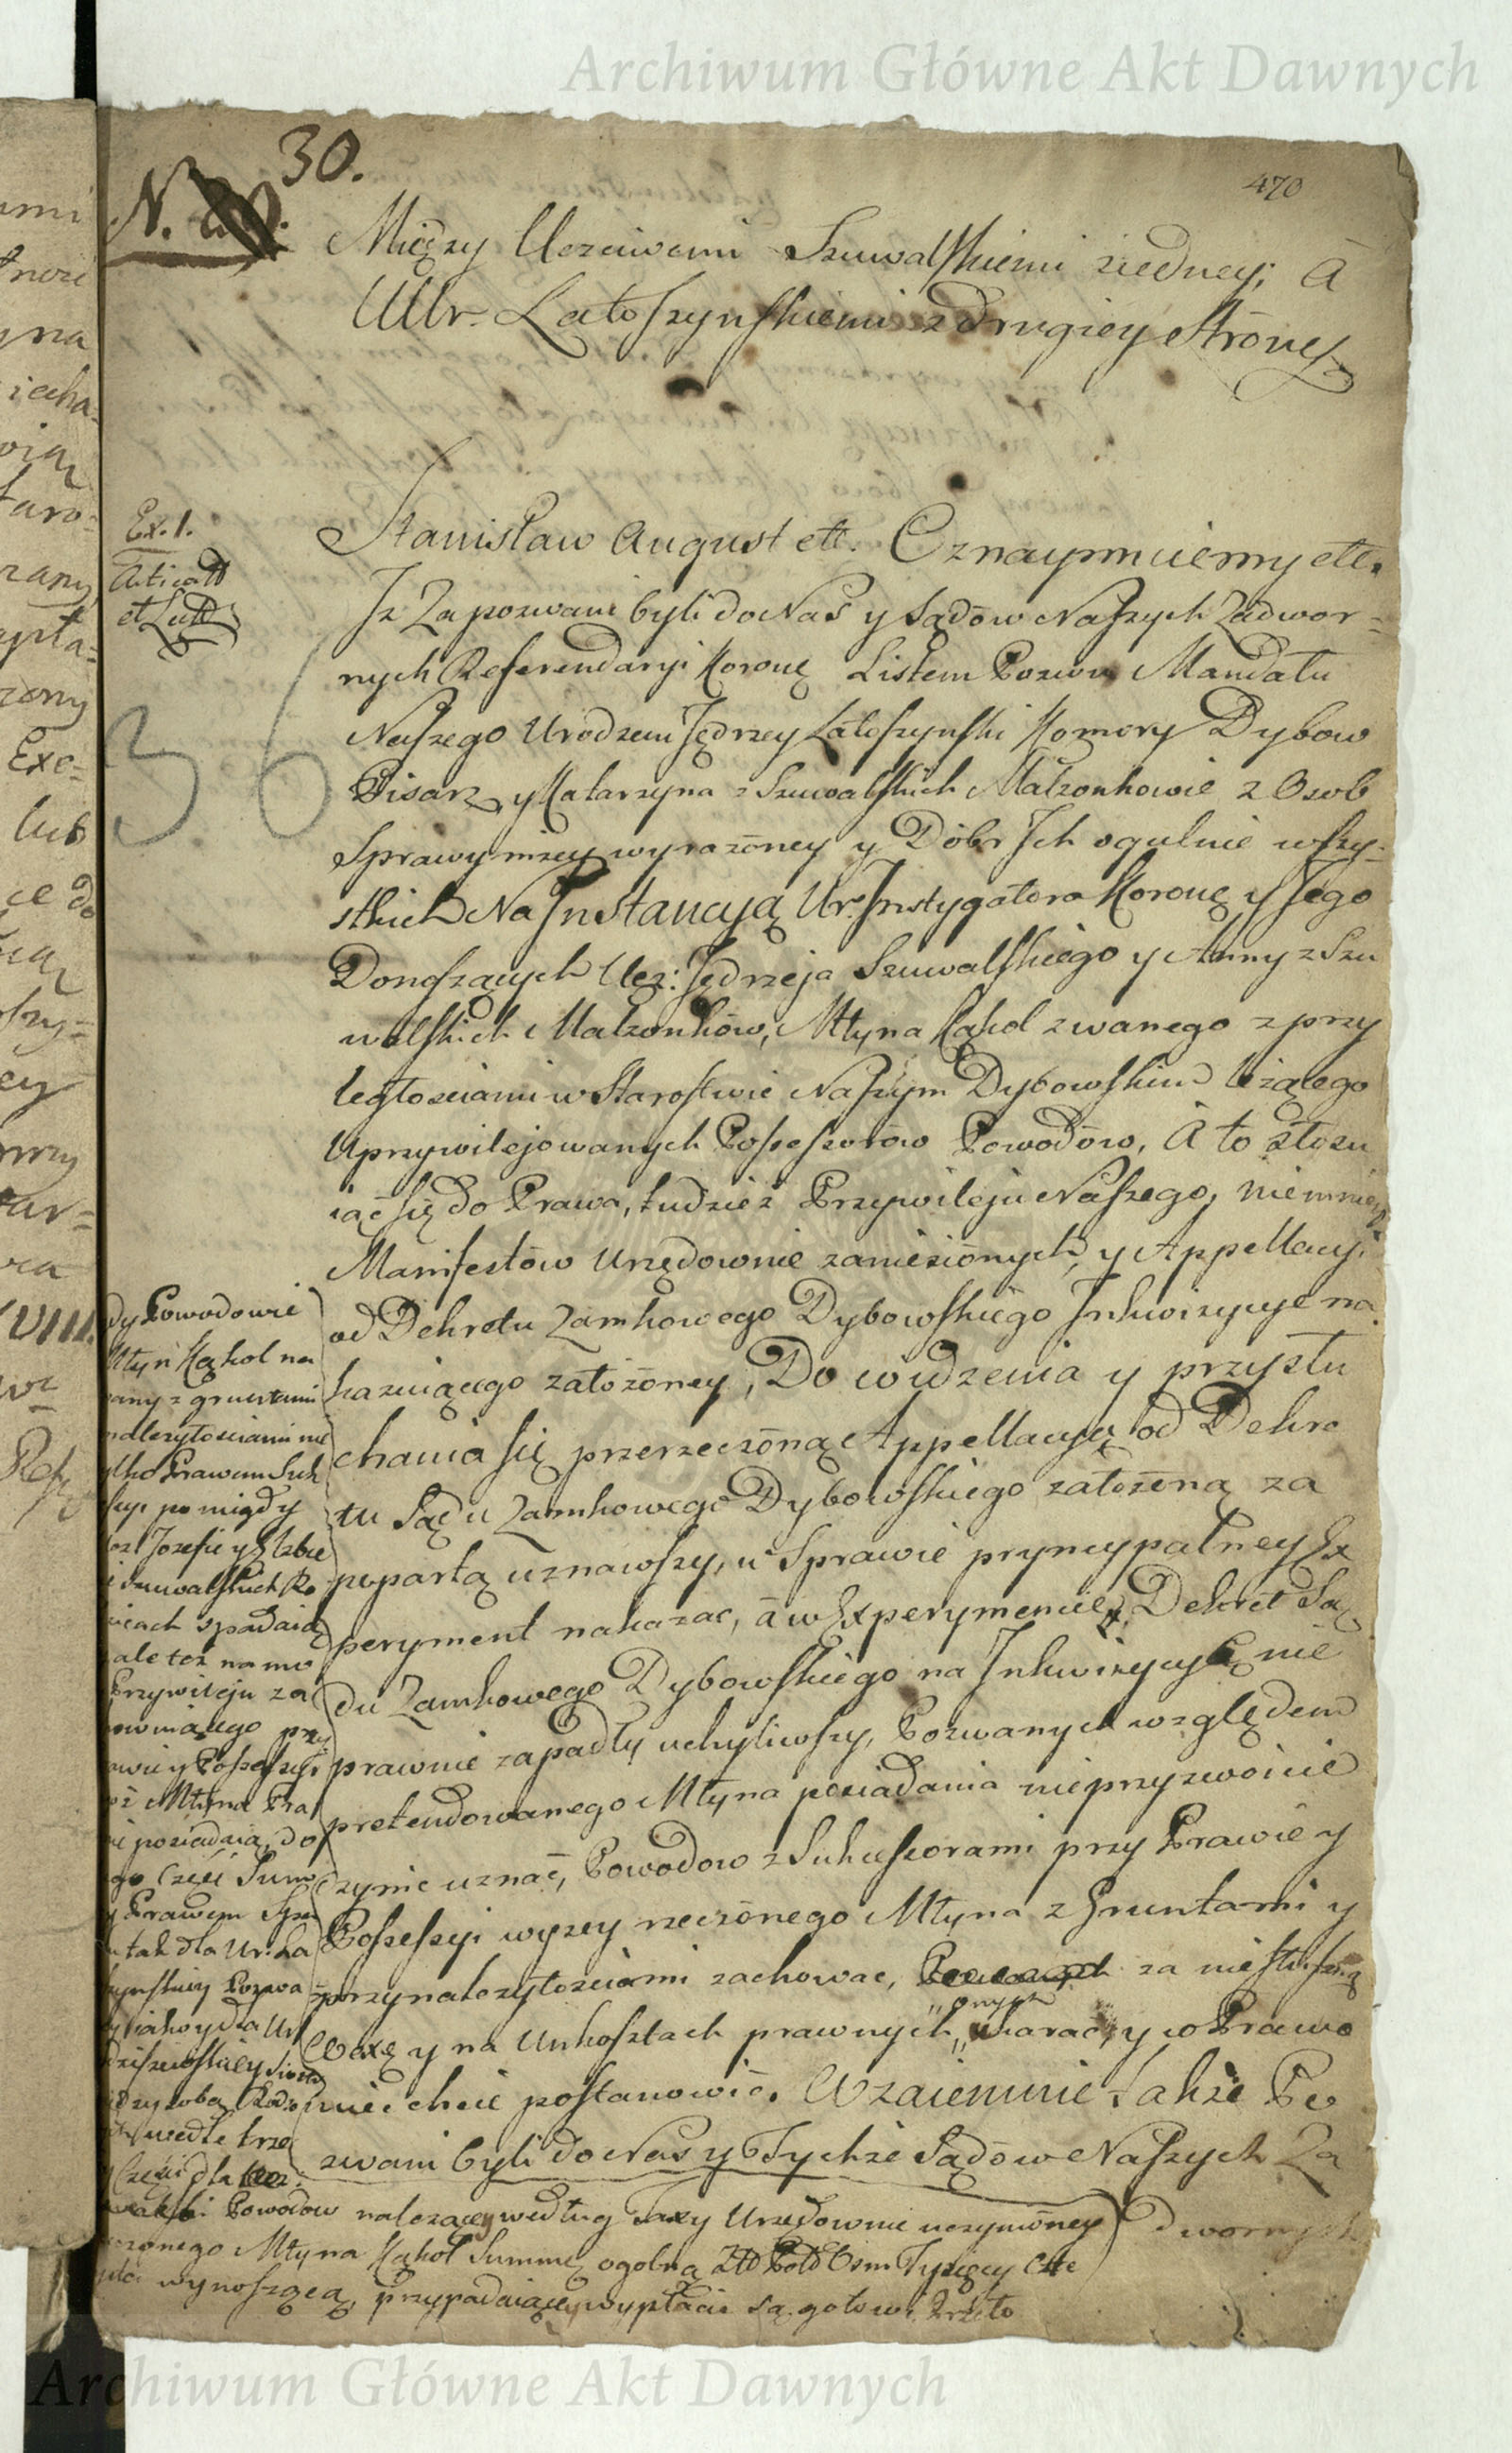 Archiwum Główne Akt Dawnych
30.
N.
470
Między Uczciwemi Szuwalskiemi z iedney; à
UUr. Latoszynskiemi z drugiey Strony
Ex. 1.
Stanisław August ett. Oznaymuiemy ett.
Iż Zapozwani byli do Nas y Sądow Naszych Zadwor=
nych Referendaryi Koronę Listem Pozwu Mandatu
Naszego Urodzeni Jędrzey Latoszynski Komory Dybow
Pisarz, y Katarzyna z Szuwalskich Małżonkowie z Osob
Sprawy niżey wyrażoney y Dóbr Ich ogulnie wszy=
stkich Na Instancyą Ur. Instygatora Koronę y Jego
Donoszących Ucz: Jędrzeja Szuwalskiego y Anny z Szu
walskich Małżonków, Młyna Kąkol zwanego z przy
ległościami w Starostwie Naszym Dybowskim leżącego
Uprzywilejowanych Possessorów Powodów, A to stosu
iąc się do Prawa, tudzież Przywileju Naszego, niemniey
Manifestów Urzędownie zaniesionych, y Appellacyi
od Dekretu Zamkowego Dybowskiego Inkwizycye na
kazuiącego założoney, Do widzenia y przysłu
chania się przerzeczoną Appellacyą od Dekre
tu Sądu Zamkowego Dybowskiego założoną za
popartą uznawszy, w Sprawie pryncypalney Ex
peryment nakazac, à w Experymencie Dekret Są
du Zamkowego Dybowskiego na Inkwizycyę nie
prawnie zapadły uchyliwszy, Pozwanych względem
pretendowanego Młyna posiadania nieprzyzwoicie
czynić uznać, Powodow z Sukcessorami przy Prawie y
Possessyi wyżey rzeczonego Młyna z Gruntami y
przynależytościami zachowac, za niesłuszną
onych
Wexę y na Unkosztach prawnych karać, y w Prawo
niechcie postanowić. Wzaiemnie także Po
zwani byli do Nas y Tychże Sądów Naszych Za
dwornych
dy Powodowie
Młyn Kąkol na
zany z gruntami
należytościami nie
ylko Prawem Suk
pomiędzy
Jozefie y Elzbie
Szuwalskich Ro
spadaią
ale też na mo
Przywileju za
przy
y Possessyi
Młyna Pra
posiadaią, do
Części Sum
Prawem
tak dla Ur. La
Pozwa
iako y dla Ur
wedle trze
Części dla
Powodow należącey według Taxy Urzędownie uczynioney
Młyna Kąkol Summę ogolną Złł Poll Osm Tysięcy Czte
wynoszącą, przypadaiącey wypłacić są gotowi,
Archiwum Główne Akt Dawnych